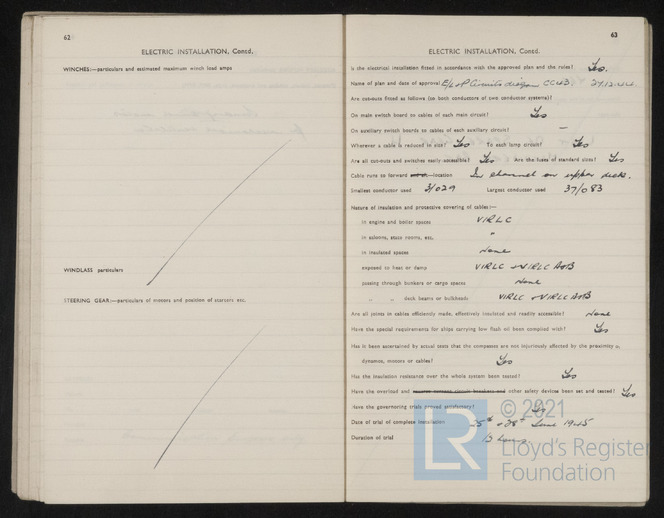 62
ELECTRIC INSTALLATION, Contd.
WINCHES:—particulars and estimated maximum winch load amps
WINDLASS particulars
STEERING GEAR:—particulars of motors and position of starters etc.
63
ELECTRIC INSTALLATION, Contd.
Is the electrical installation fitted in accordance with the approved plan and the rules? Yes.
Name of plan and date of approval E/L & P Circuits diagram CC43 29.12.44
Are cut-outs fitted as follows (to both conductors of two conductor systems)?
On main switch board to cables of each main circuit? Yes
On auxiliary switch boards to cables of each auxiliary circuit? —
Wherever a cable is reduced in size? Yes To each lamp circuit? Yes
Are all cut-outs and switches easily accessible? Yes Are the fuses of standard sizes? Yes
Cable runs to forward location In channel on upper deck.
Smallest conductor used 3/029 Largest conductor used 37/083
Nature of insulation and protective covering of cables:—
in engine and boiler spaces VIRLC
in saloons, state rooms, etc. "
in insulated spaces None
exposed to heat or damp VIRLC & VIRLC A&B
passing through bunkers or cargo spaces None
" " deck beams or bulkheads VIRLC & VIRLC A&B
Are all joints in cables efficiently made, effectively insulated and readily accessible? None
Have the special requirements for ships carrying low flash oil been complied with? Yes
Has it been ascertained by actual tests that the compasses are not injuriously affected by the proximity of
dynamos, motors or cables? Yes
Has the insulation resistance over the whole system been tested? Yes
Have the overload and reverse current circuit breakers and other safety devices been set and tested? Yes
Have the governoring trials proved satisfactory? Yes
Date of trial of complete installation 25th & 28th June 1945
Duration of trial 13 hours.
LR
© 2021
Lloyd's Register
Foundation